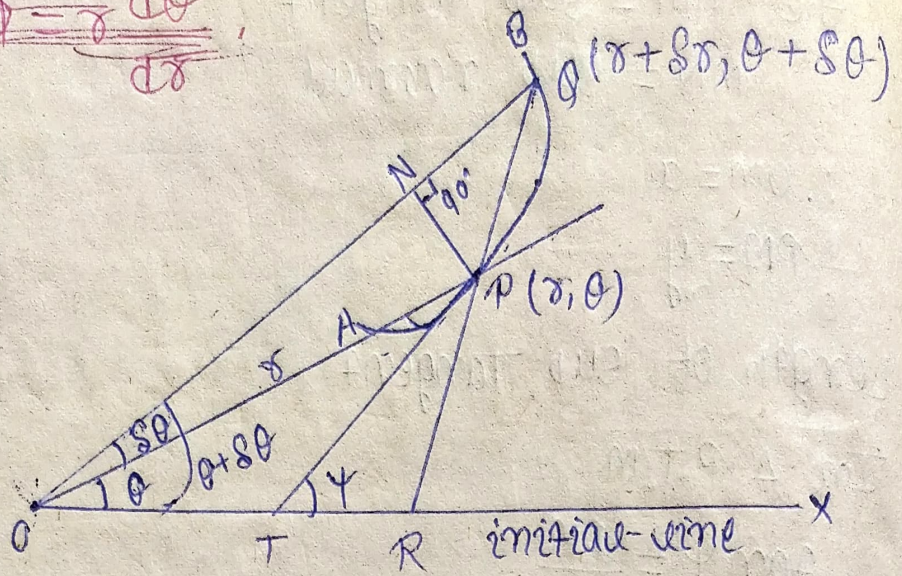 = r dθ
dr
B
Q (r+δr, θ+δθ)
N
90°
P (r, θ)
A
r
δθ
θ
θ+δθ
ψ
O
T
R
initial-line
X